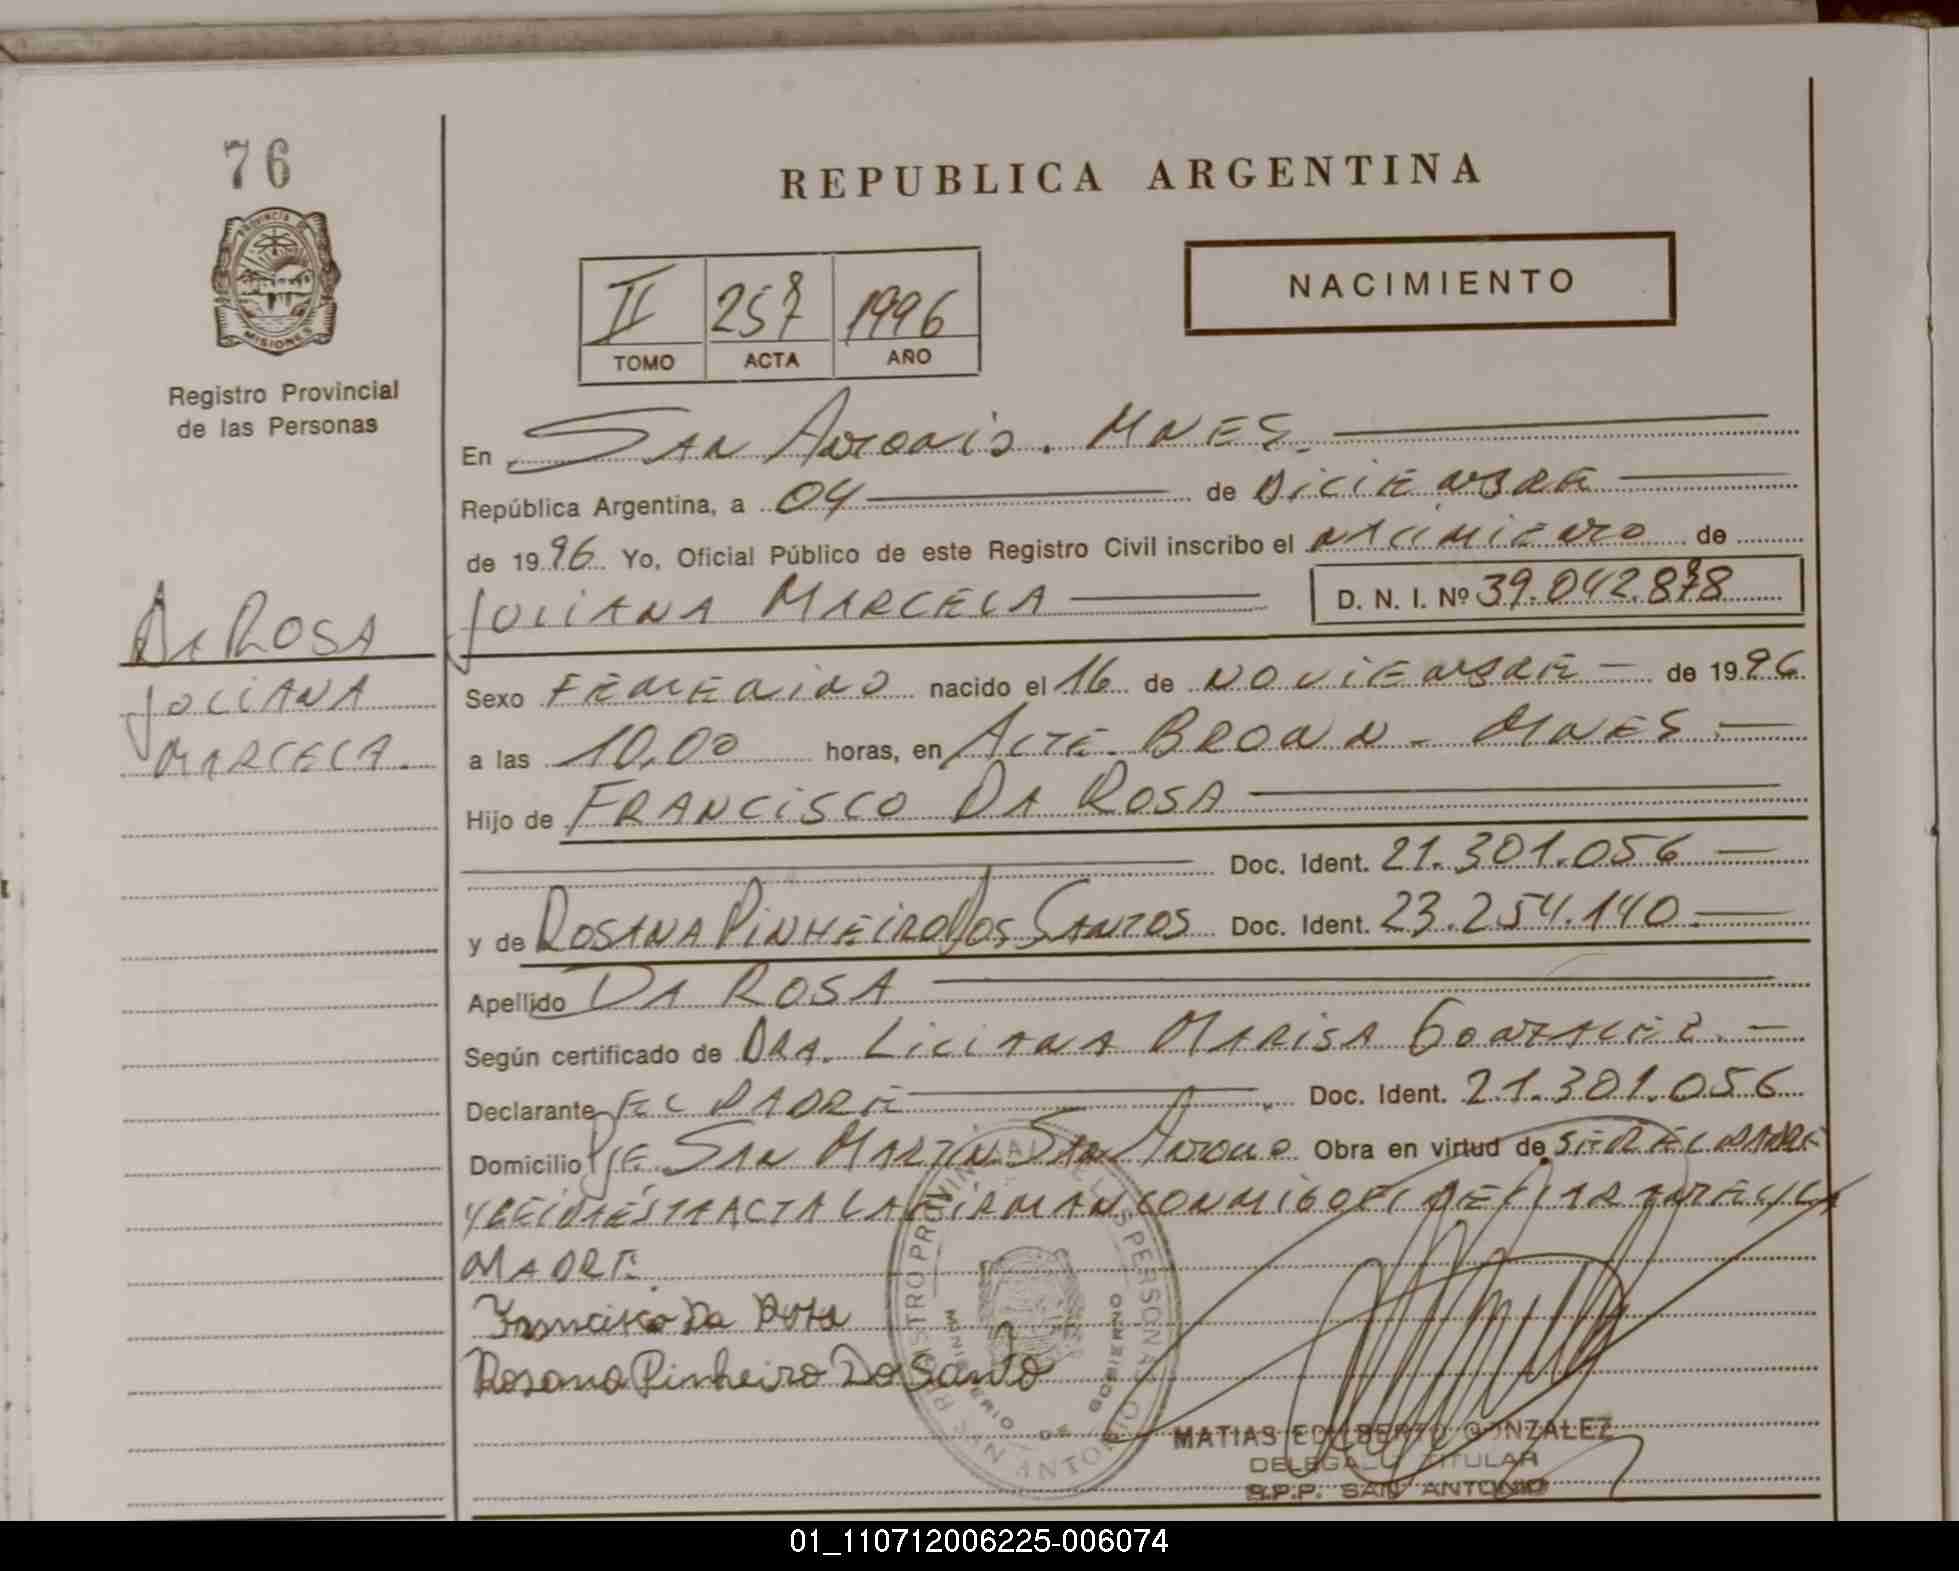 76
REPUBLICA ARGENTINA
PROVINCIA DE
MISIONES
II 257 1996
TOMO ACTA AÑO
NACIMIENTO
Registro Provincial
de las Personas
En SAN ANTONIO. MNES.
República Argentina, a 04 de DICIEMBRE
de 1996 Yo, Oficial Público de este Registro Civil inscribo el NACIMIENTO de
JULIANA MARCELA D. N. I. Nº 39.042.878
DA ROSA
JULIANA
MARCELA.
Sexo FEMENINO nacido el 16 de NOVIEMBRE de 1996.
a las 10,00 horas, en ALTE. BROWN - MNES.
Hijo de FRANCISCO DA ROSA
Doc. Ident. 21.301.056
y de ROSANA PINHEIRO DOS SANTOS Doc. Ident. 23.254.140
Apellido DA ROSA
Según certificado de DRA. LILIANA MARISA GONZALEZ.
Declarante EL PADRE Doc. Ident. 21.301.056
Domicilio PJE. SAN MARTIN SAN ANTONIO Obra en virtud de SER EL PADRE
Y LEIDA ESTA ACTA LA FIRMAN CONMIGO EL DECLARANTE Y LA
MADRE.
Francisco Da Rosa
Rosana Pinheiro Do Santo
REGISTRO PROVINCIAL DE LAS PERSONAS
MINISTERIO DE GOBIERNO
SAN ANTONIO
MATIAS EDILBERTO GONZALEZ
DELEGADO TITULAR
R.P.P. SAN ANTONIO
01_110712006225-006074